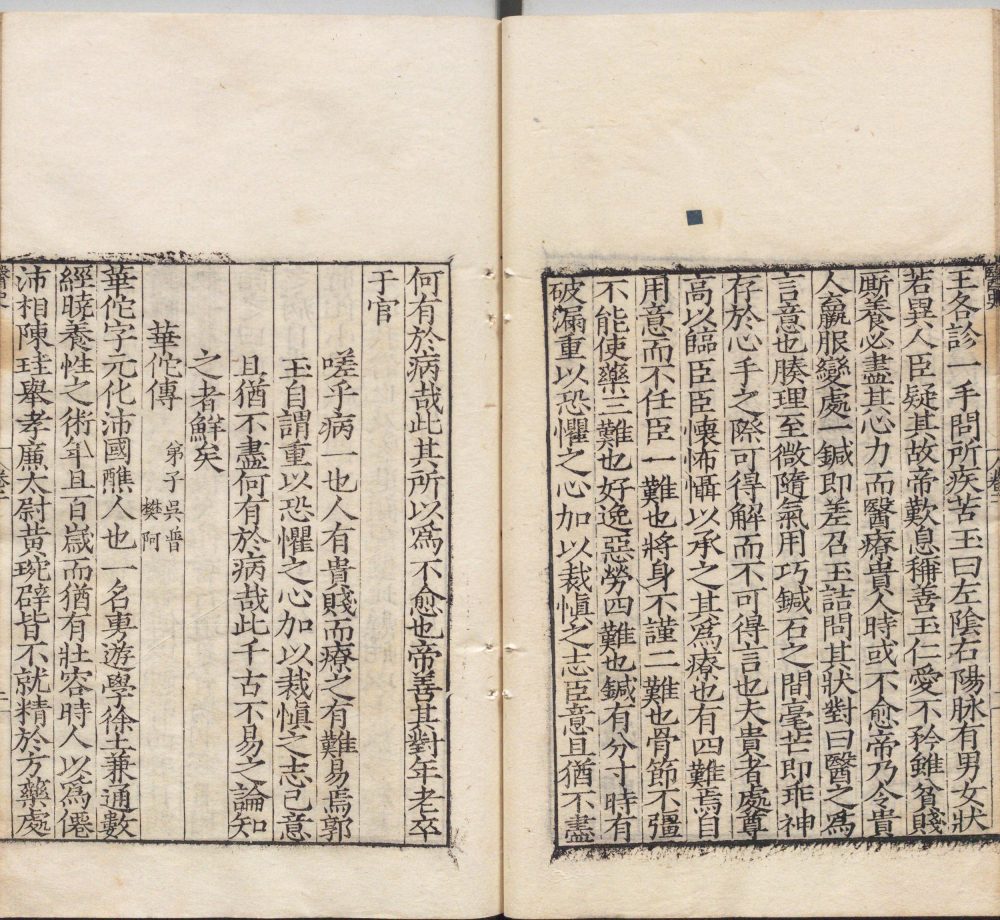 王各診一手問所疾苦玉曰左陰右陽脉有男女狀
若異人臣疑其故帝歎息稱善玉仁愛不矜雖貧賤
厮養必盡其心力而醫療貴人時或不愈帝乃令貴
人羸服變處一鍼即差召玉詰問其狀對曰醫之爲
言意也腠理至微隨氣用巧鍼石之間毫芒即乖神
存於心手之際可得解而不可得言也夫貴者處尊
高以臨臣臣懷怖懾以承之其爲療也有四難焉自
用意而不任臣一難也將身不謹二難也骨節不彊
不能使藥三難也好逸惡勞四難也鍼有分寸時有
破漏重以恐懼之心加以裁慎之志臣意且猶不盡
何有於病哉此其所以爲不愈也帝善其對年老卒
于官
嗟乎病一也人有貴賤而療之有難易焉郭
玉自謂重以恐懼之心加以裁慎之志己意
且猶不盡何有於病哉此千古不易之論知
之者鮮矣
華佗傳 弟子吳普 樊阿
華佗字元化沛國譙人也一名旉遊學徐土兼通數
經曉養性之術年且百歲而猶有壯容時人以爲僊
沛相陳珪舉孝廉太尉黃琬辟皆不就精於方藥處